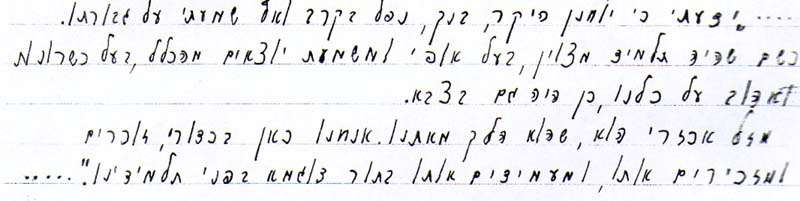 ....."ידעתי כי יוחנן היקר, בנך, נפל בקרב ואף שמעתי על גבורתו.
כשם שהיה תלמיד מצוין, בעל אופי ומשמעת יוצאים מהכלל, בעל כשרונות
ואהוב על כלנו, כן היה גם בצבא.
גזל אכזרי הוא, שהוא הלך מאתנו. אנחנו כאן בכדורי, זוכרים
ומזכירים אותו, ומעמידים אותו בתור דוגמא בפני תלמידינו".....